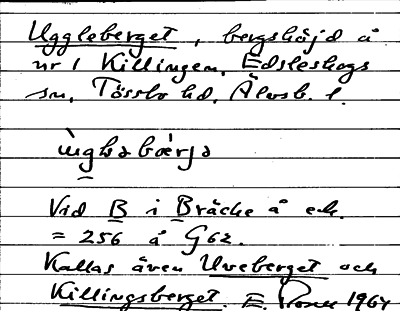 Uggleberget, bergshöjd å
nr 1 Killingen, Edsleskogs
sn, Tössbo hd, Älvsb. l.
ùgləbær̀jə
Vid B i Bräcke å ek.
= 256 å G62.
Kallas även Uveberget och
Killingsberget. E. 1964